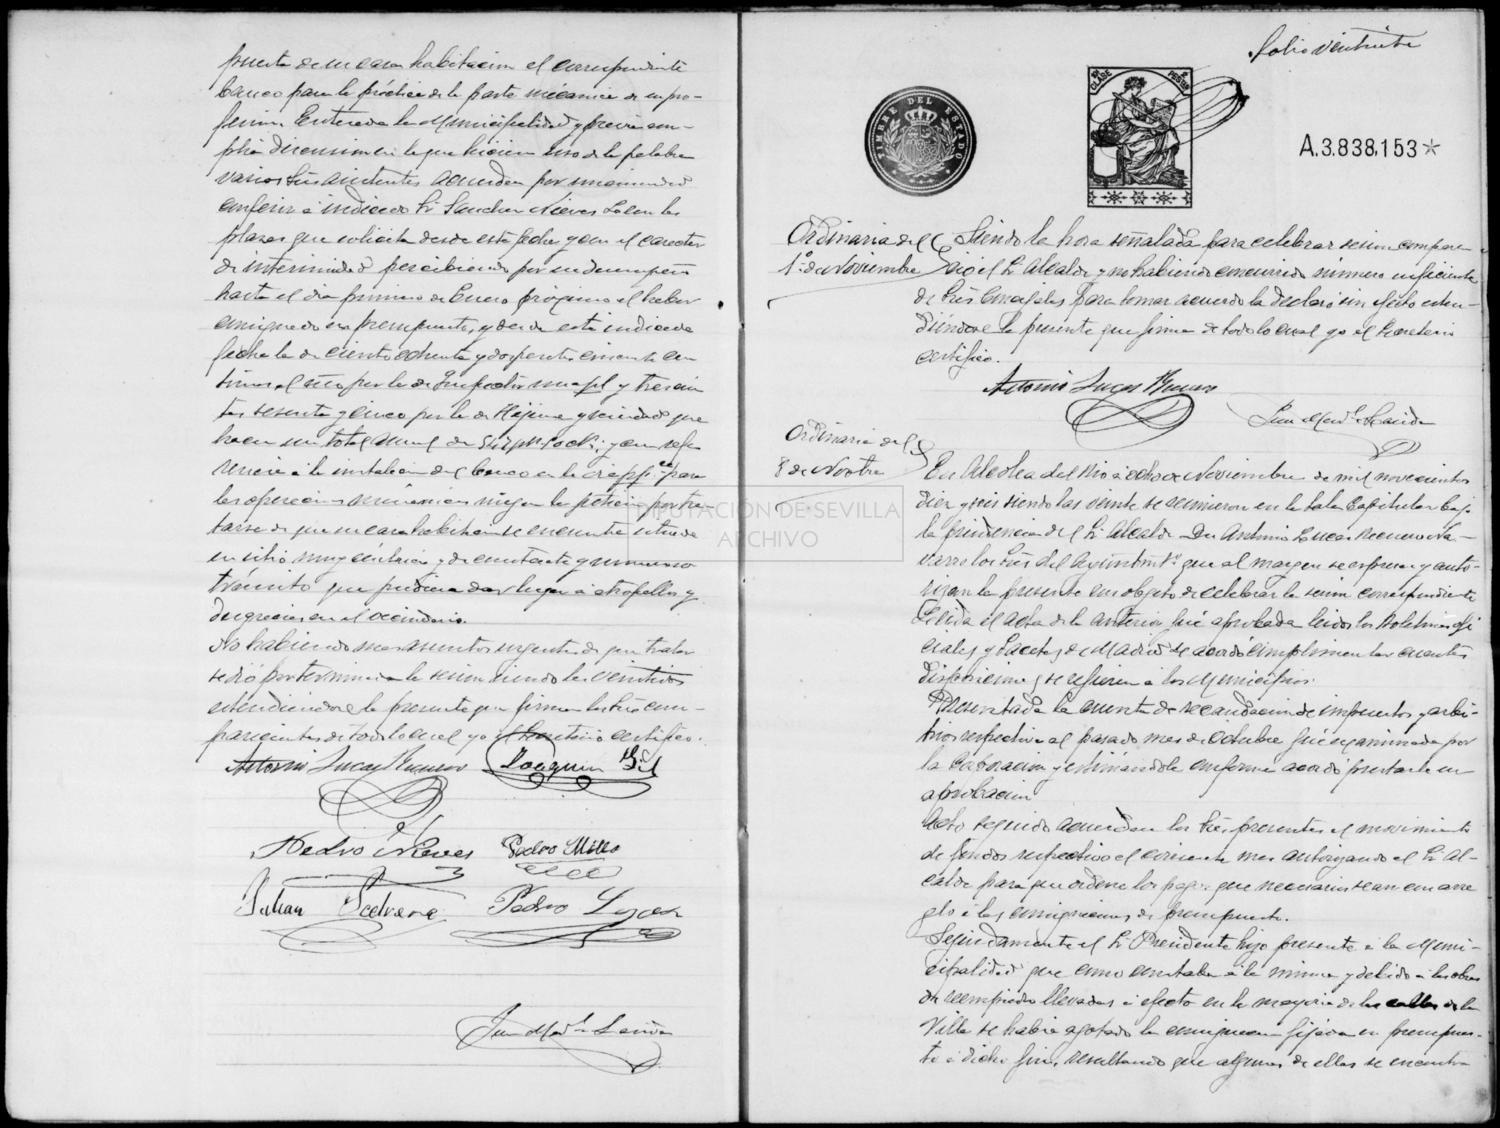 puerta de su casa habitacion el correspondiente
banco para la práctica de la parte mecánica de su pro-
fesion. Enterada la Municipalidad y previa am-
plia discusion en la que hicieron uso de la palabra
varios Srs asistentes acuerdan por unanimidad
conferir á indicado Sr Sanchez Nieves las
plazas que solicita desde esta fecha y con el caracter
de interinidad percibiendo por su desempeño
hasta el dia primero de Enero próximo el haber
consignado en presupuesto, y desde esta indicada
fecha la de ciento ochenta y dos pesetas cincuenta cen
timos al año por la de Inspector mcpl y trescien
tas sesenta y cinco por la de Higiene y sanidad que
hacen un total anual de 547 pts 50 cts; y con refe
rencia á la instalacion del banco en la via pp.ca para
las operaciones niegan la peticion por tra-
tarse de que su casa habitacion se encuentra situada
en sitio muy céntrico y de constante y numeroso
transito que pudiera dar lugar á atropellos y
desgracias en el vecindario.
No habiendo mas asuntos urgentes de que tratar
se dió por terminada la sesion siendo las veintidos
estendiendose la presente que firman los Srs com-
parecientes de todo lo cual yo el Secretario certifico.
Antonio Lucas Romero Joaquin Gil
Pedro Nieves Pedro Millo
Julian Pedro
Folio veintisiete
TIMBRE DEL ESTADO
CLASE PESETAS
A.3.838,153*
Ordinaria del 1º de Noviembre
Siendo la hora señalada para celebrar sesion compare
ció el Sr Alcalde y no habiendo concurrido número suficiente
de Srs Concejales para tomar acuerdo la declaró sin efecto esten-
diéndose la presente que firma de todo lo cual yo el Secretario
certifico.
Antonio Lucas Romero
Ordinaria del
8 de Novbre
En Alcolea del Rio á ocho de Noviembre de mil novecientos
diez y seis siendo las veinte se reunieron en la Sala Capitular bajo
la presidencia del Sr Alcalde Don Antonio Lucas Romero Na-
varro los Srs del Ayuntmtº que al margen se espresan y auto-
rizan la presente con objeto de celebrar la sesion correspondiente
Leida el acta de la anterior fué aprobada leidos los Boletines ofi
ciales y Gacetas de Madrid se acordó cumplimentar cuantas
disposiciones se refieren á los Municipios.
Presentada la cuenta de recaudacion de impuestos y arbi-
trios respectiva al pasado mes de Octubre fué examinada por
la Corporacion y estimandola conforme acordó prestarle su
aprobacion
Acto seguido acuerdan los Srs presentes el movimiento
de fondos respectivo al corriente mes autorizando al Sr Al-
calde para que ordene los pagos que necesarios sean con arre
glo á las consignaciones de presupuesto.
Seguidamente el Sr Presidente hizo presente á la Muni-
cipalidad que como constaba á la misma y debido á las obras
de reempiedro llevadas á efecto en la mayoria de las calles de la
Villa se habia agotado la consignacion fijada en presupues-
to á dicho fin, resultando que algunas de ellas se encontra
DIPUTACIÓN DE SEVILLA
ARCHIVO